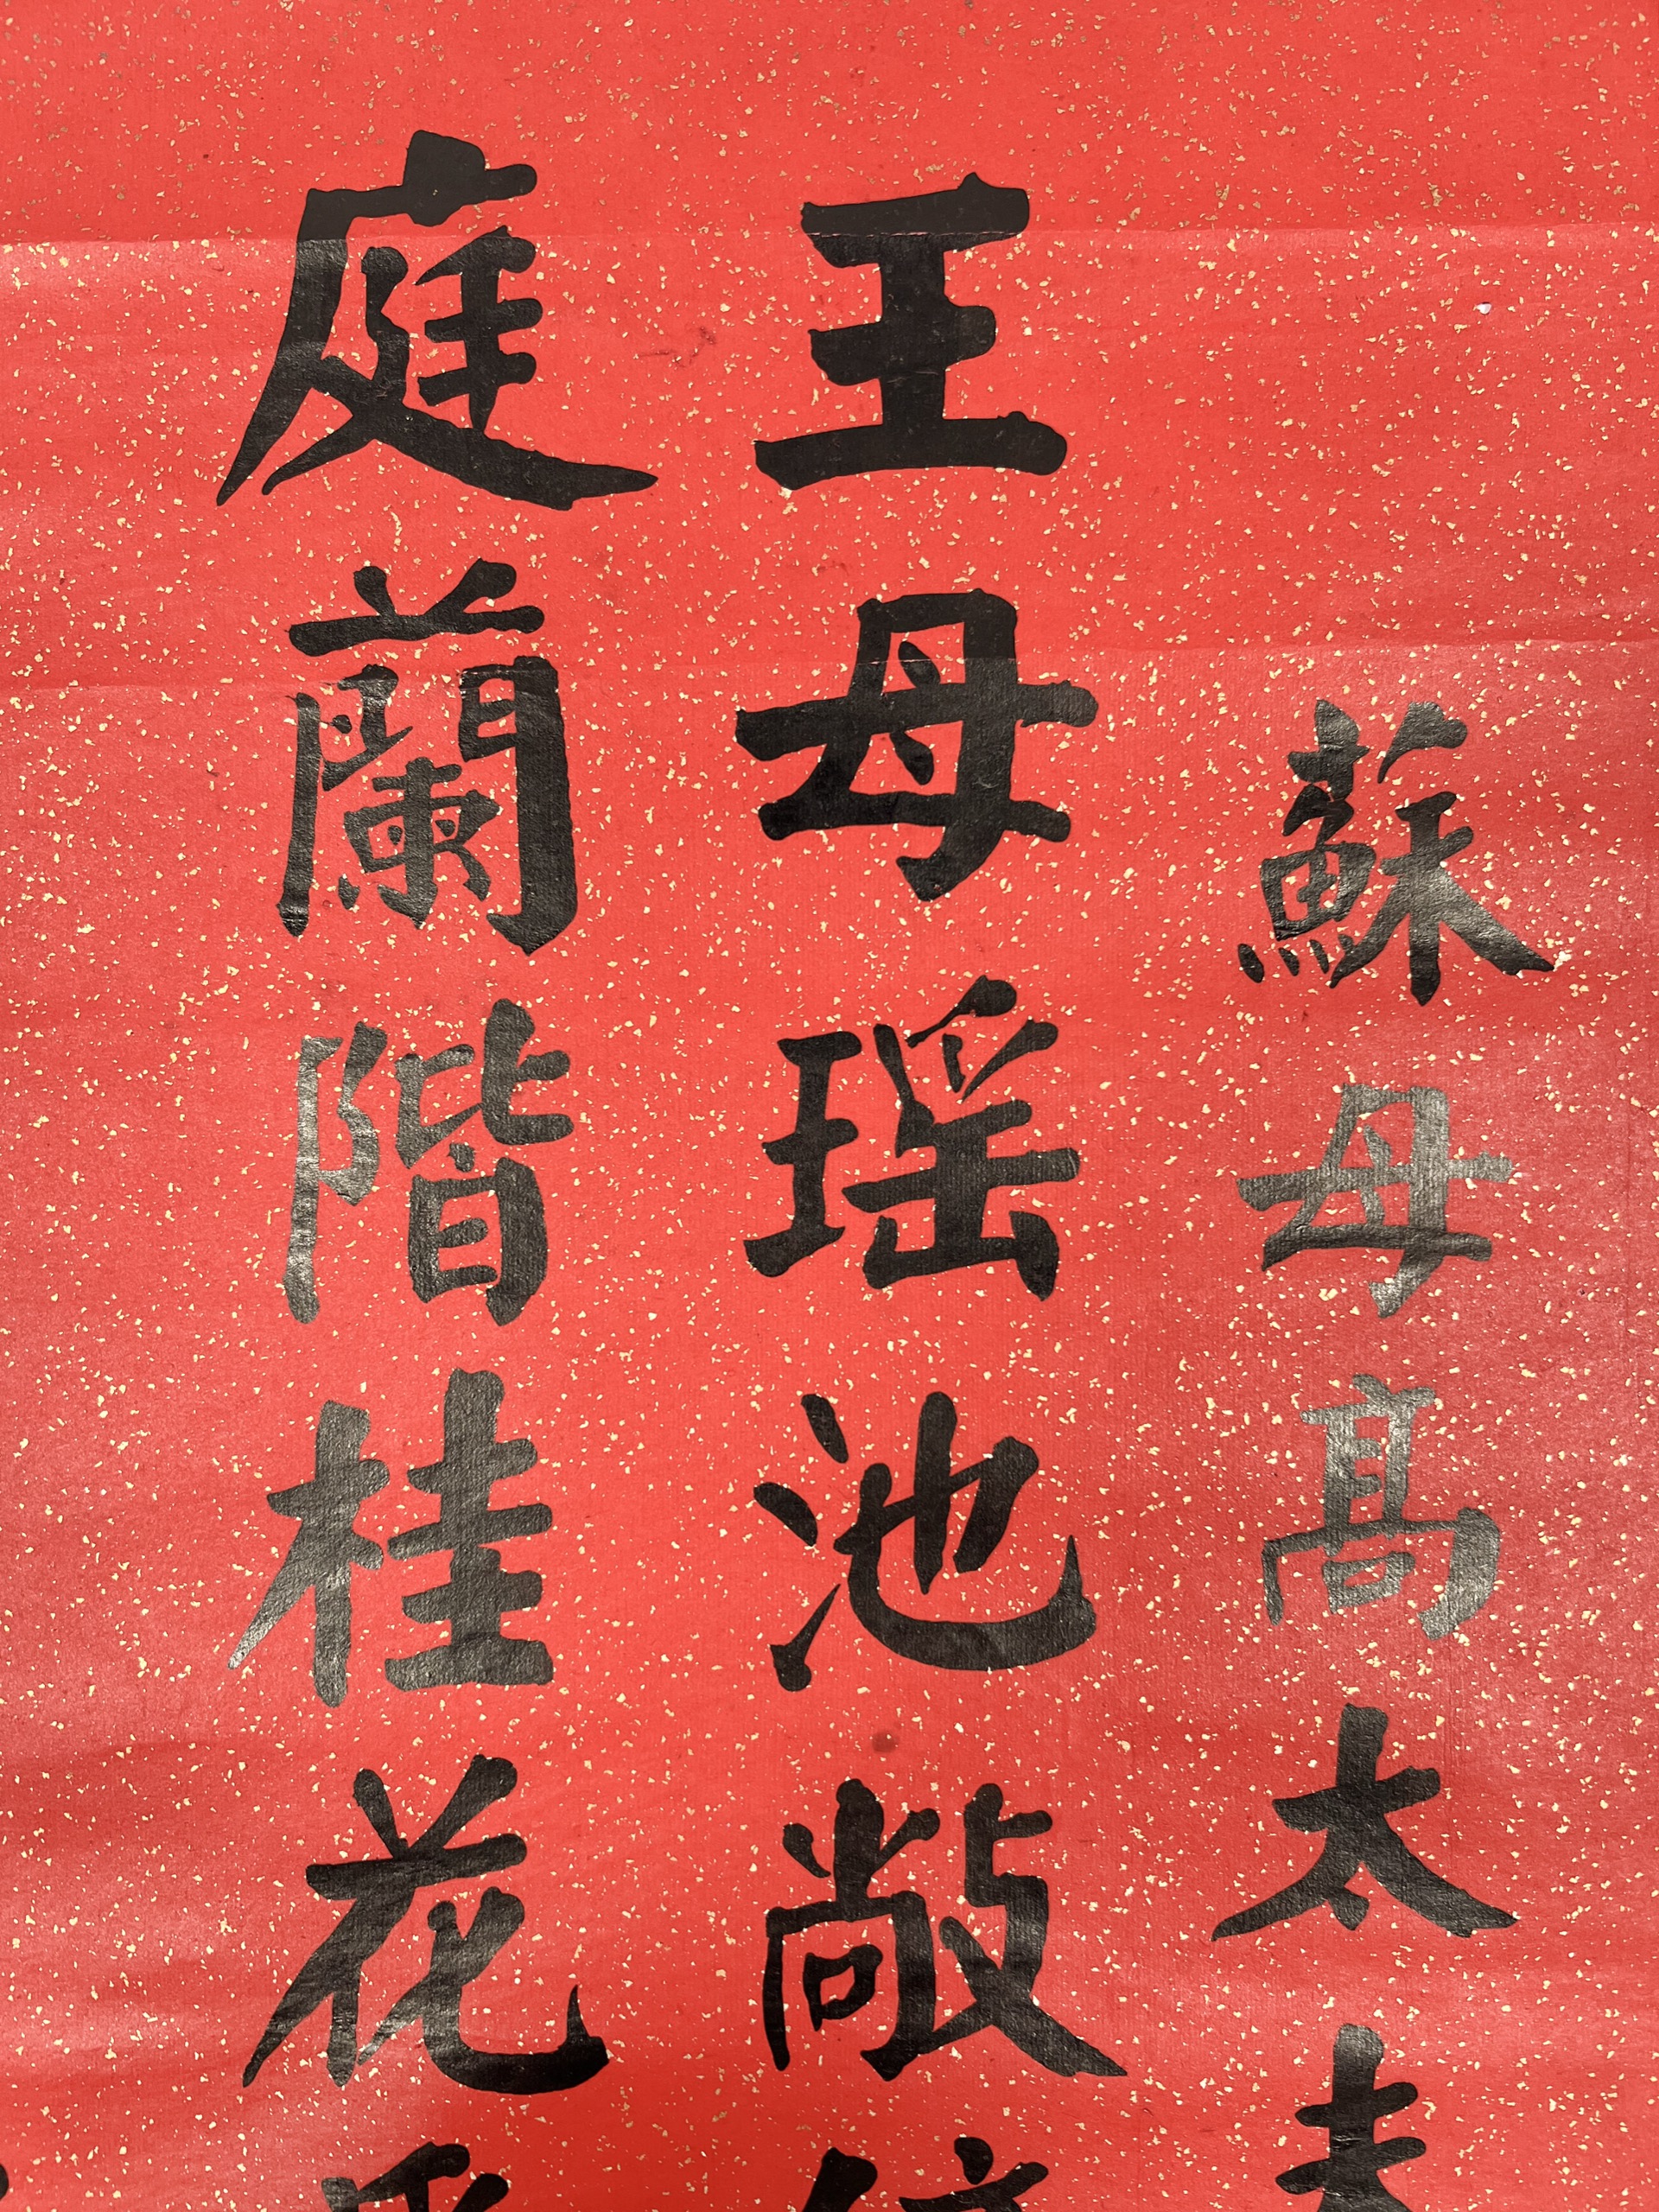 蘇母高太夫
王母瑶池敞
庭蘭階桂花